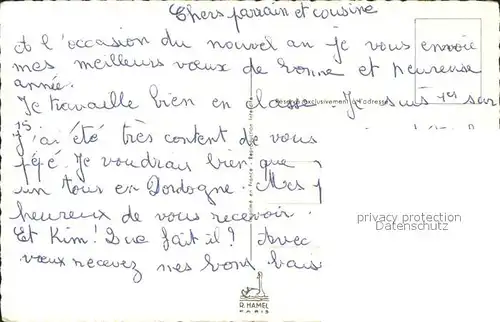 Chers parrain et cousine
A l'occasion du nouvel an je vous envoie
mes meilleurs vœux de bonne et heureuse
année.
Je travaille bien en classe. Je suis 1er sur
15.
J'ai été très content de vous
Je voudrais bien que
un tour en Dordogne. Mes
heureux de vous recevoir.
Et Kim! Que fait il? Avec
vœux recevez mes bons bais
privacy protection
Datenschutz
R. HAMEL
PARIS